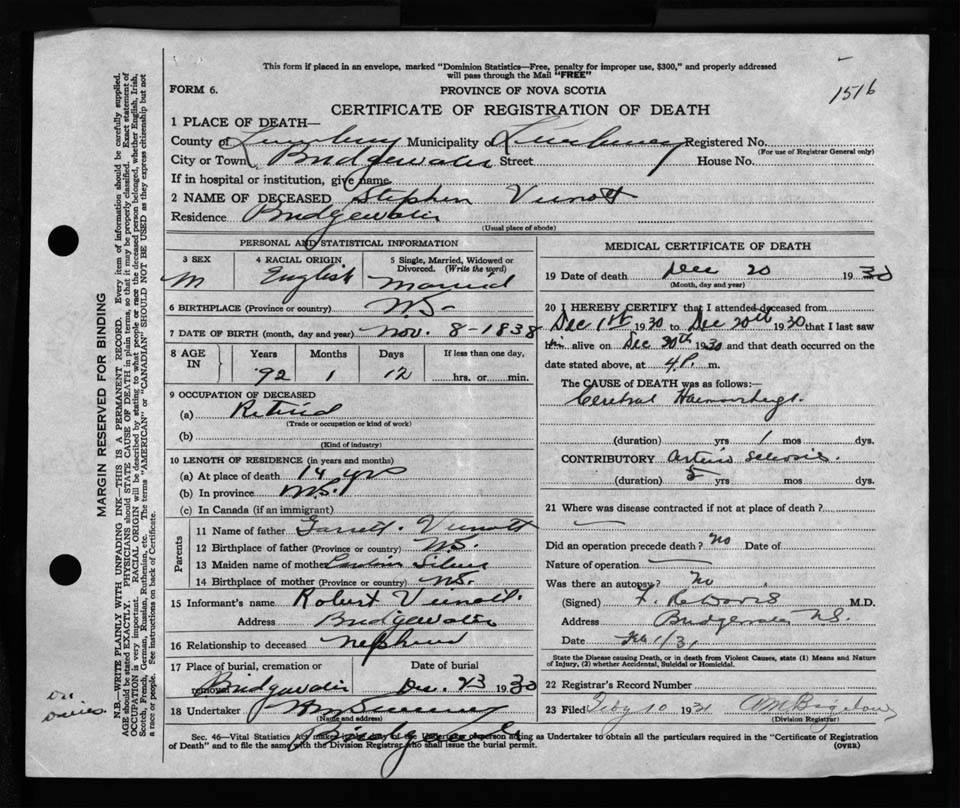 This form if placed in an envelope, marked "Dominion Statistics—Free, penalty for improper use, $300," and properly addressed
will pass through the Mail "FREE"
1516
FORM 6.
PROVINCE OF NOVA SCOTIA
CERTIFICATE OF REGISTRATION OF DEATH
1 PLACE OF DEATH—
County of Lunenburg Municipality of Lunenburg Registered No.
(For use of Registrar General only)
City or Town Bridgewater Street House No.
If in hospital or institution, give name
2 NAME OF DECEASED Stephen Veinott
Residence Bridgewater
(Usual place of abode)
PERSONAL AND STATISTICAL INFORMATION
3 SEX 4 RACIAL ORIGIN 5 Single, Married, Widowed or
Divorced. (Write the word)
M English Married
6 BIRTHPLACE (Province or country) N.S.
7 DATE OF BIRTH (month, day and year) Nov. 8-1838
8 AGE IN Years Months Days If less than one day,
92 1 12 hrs. or min.
9 OCCUPATION OF DECEASED
(a) Retired
(Trade or occupation or kind of work)
(b)
(Kind of industry)
10 LENGTH OF RESIDENCE (in years and months)
(a) At place of death 14 yrs
(b) In province N.S.
(c) In Canada (if an immigrant)
Parents
11 Name of father Garrett Veinott
12 Birthplace of father (Province or country) N.S.
13 Maiden name of mother
14 Birthplace of mother (Province or country) N.S.
15 Informant's name Robert Veinott
Address Bridgewater
16 Relationship to deceased nephew
17 Place of burial, cremation or Date of burial
removal Bridgewater Dec. 23 1930
18 Undertaker
(Name and address)
Bridgewater
MEDICAL CERTIFICATE OF DEATH
19 Date of death Dec 20 1930
(Month, day and year)
20 I HEREBY CERTIFY that I attended deceased from
Dec 1st 1930 to Dec 20th 1930 that I last saw
him alive on Dec 20th 1930 and that death occurred on the
date stated above, at 4 P. m.
The CAUSE of DEATH was as follows:—
Cerebral Haemorrhage.
(duration) yrs 1 mos dys.
CONTRIBUTORY Arterio Sclerosis.
(duration) 5 yrs mos dys.
21 Where was disease contracted if not at place of death?
Did an operation precede death? no Date of
Nature of operation
Was there an autopsy? No
(Signed) Davis M.D.
Address Bridgewater N.S.
Date Feb 1/31
State the Disease causing Death, or in death from Violent Causes, state (1) Means and Nature
of Injury, (2) whether Accidental, Suicidal or Homicidal.
22 Registrar's Record Number
23 Filed Feby 10 1931
(Division Registrar)
Sec. 46—Vital Statistics Act makes it the duty of the Undertaker or person acting as Undertaker to obtain all the particulars required in the "Certificate of Registration
of Death" and to file the same with the Division Registrar who shall issue the burial permit.
(OVER)
MARGIN RESERVED FOR BINDING
N.B. WRITE PLAINLY WITH UNFADING INK—THIS IS A PERMANENT RECORD. Every item of information should be carefully supplied.
AGE should be stated EXACTLY. PHYSICIANS should STATE CAUSE OF DEATH in plain terms, so that it may be properly classified. Exact statement of
OCCUPATION is very important. RACIAL ORIGIN will be described by stating to what people or race the deceased person belonged, whether English, Irish,
Scotch, French, German, Russian, Ruthenian, etc. The terms "AMERICAN" or "CANADIAN" SHOULD NOT BE USED as they express citizenship but not
a race or people. See instructions on back of Certificate.